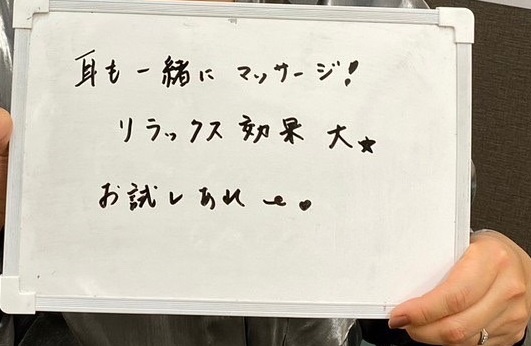 耳も一緒にマッサージ!
リラックス効果大★
お試しあれ〜●